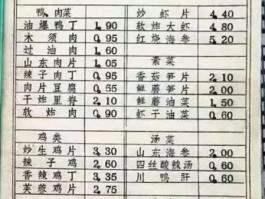 鸭、肉菜
油爆鸭丁 1.90
木须肉 0.95
过油肉 1.60
山东肉片 1.05
辣子肉丁 0.95
肉片豆腐 0.65
干炸里脊 2.10
软炸肉 0.90
鸡类
炒生鸡片 3.30
辣子鸡 2.60
香辣鸡丁 3.35
芙蓉鸡片 2.75
炒虾片 4.40
软炸大虾 4.80
红烧海参 5.20
素菜
香菇笋片 2.10
鲜蘑笋片 2.00
鲜蘑油菜 1.50
虾干油菜 0.60
汤菜
山东海参 2.00
四丝酸辣汤 0.60
川鸭肝 0.60